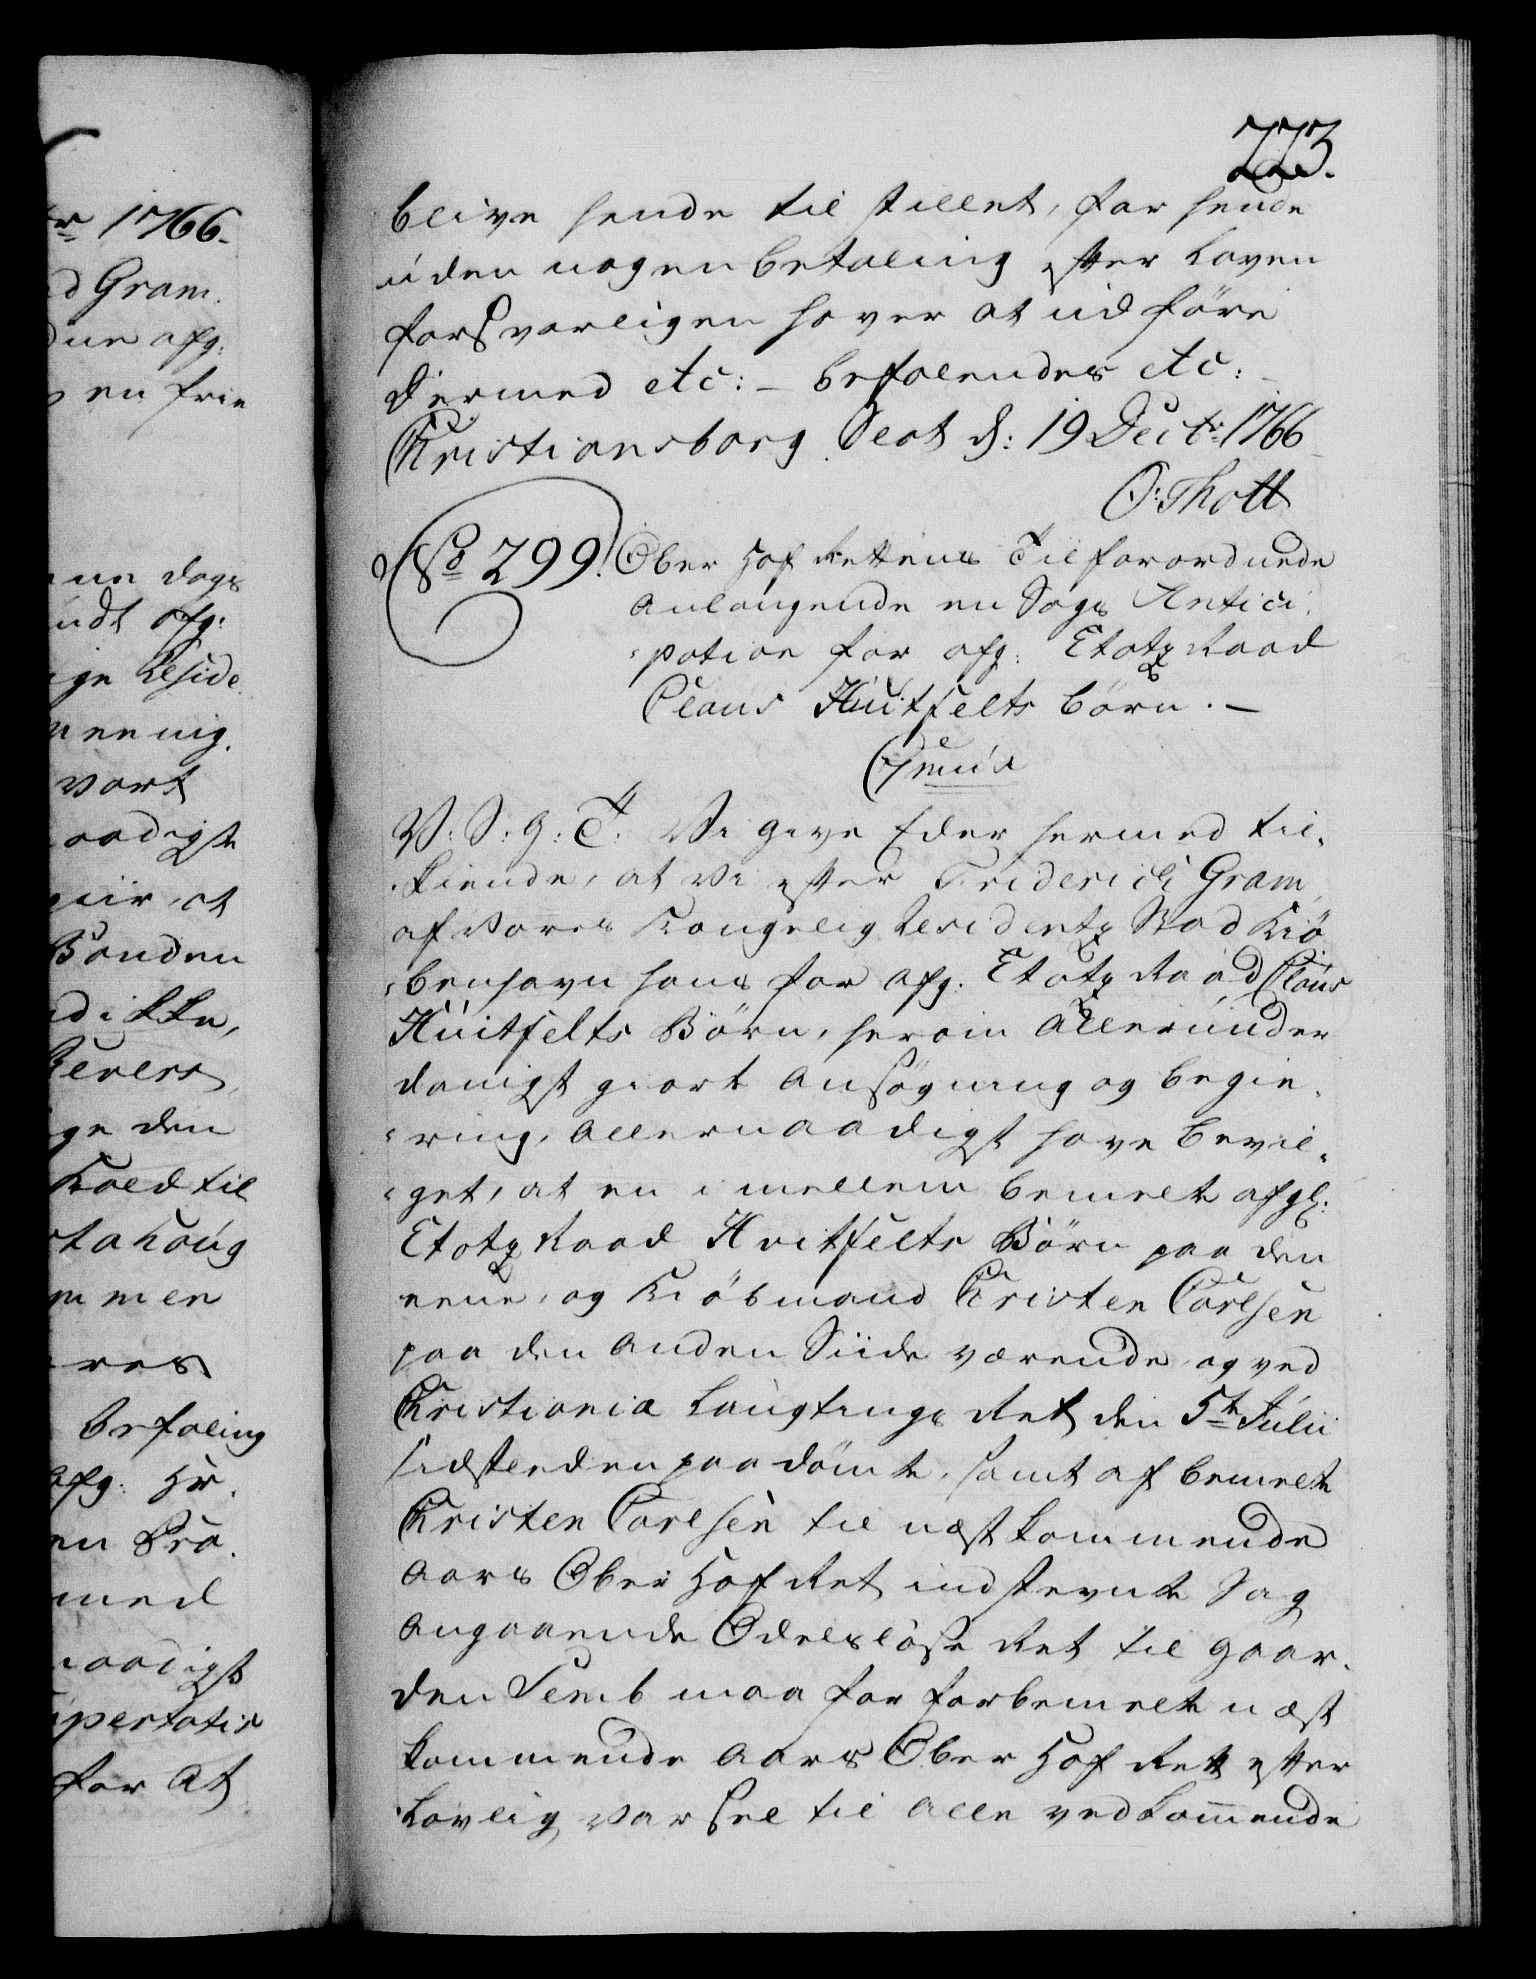 773.
blive hende til stillet, for hende
uden nogen betaling efter Loven
forsvarligen haver at udføre
dermed etc: – befalendes etc:
Christiansborg Slot d: 19 Dectr: 1766
O: Thott
No 299.
Ober Hof Rettens Tilforordnede
anlangende en Sags Antici-
-pation for afg: Etatz Raad
Claus Huitfelts Børn. –
V: S: G: T: Vi give Eder hermed til-
-kiende, at vi efter Friderich Gram
af Vores Kongelig Residentz Stad Kiø-
-benhavn hans for afg. Etatz Raad Claus
Huitfelts Børn, herom Allerunder
danigst giort Ansøgning og begie-
-ring, Allernaadigst have bevil-
-get, at en imellem bemelte afgl:
Etatz Raad Hvitfelts Børn paa den
eene, og Kiøbmand Christen Carlsen
paa den anden Siide værende og ved
Christiania Laugtings Ret den 5te Julii
sidstleden paadømte, samt af bemelte
Christen Carlsen til næstkommende
Aars Ober Hof Ret indstevnte Sag
angaaende Odelsløse Ret til Gaar-
den Semb maa for forbemelte næst
kommende Aars Ober Hof Ret efter
Lovlig Varsel til alle vedkommende
1766.
d Gram.
afg:
en frie
dags
afg:
ige Reside
meenig.
vort
aadigste
at
Bonden
d ikke,
Revers
ge den
Kald til
mmer
res
befaling
afg: Hr.
en Pro.
med
naadigst
for At